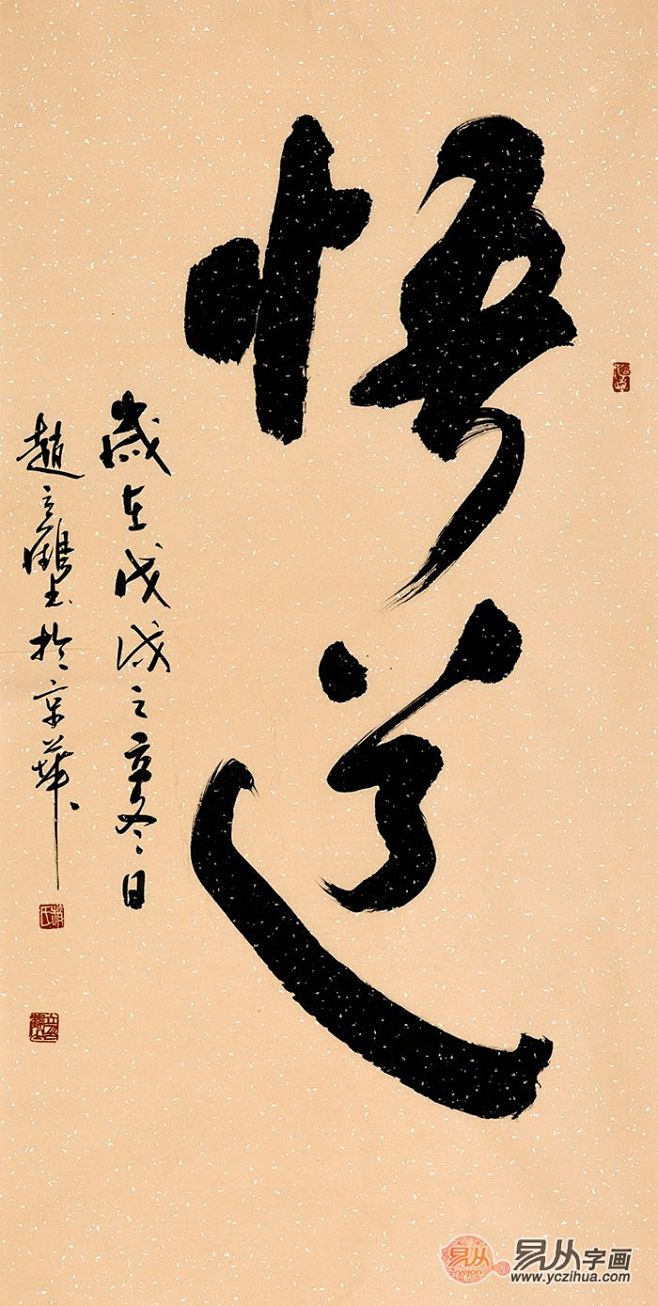 悟道
歲在戊戌之亥冬日
趙立鶴書於京華
趙氏
易从
yicyon
易从字画
www.yczihua.com